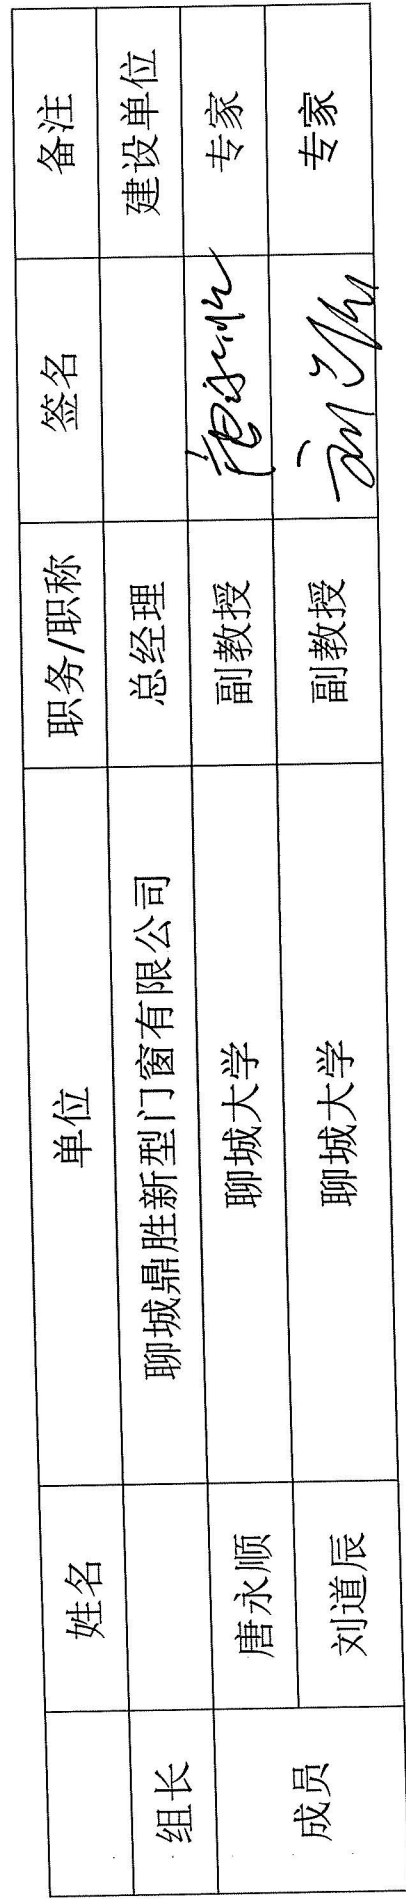 姓名 单位 职务/职称 签名 备注
组长 聊城鼎胜新型门窗有限公司 总经理 建设单位
成员 唐永顺 聊城大学 副教授 唐永顺 专家
刘道辰 聊城大学 副教授 刘道辰 专家